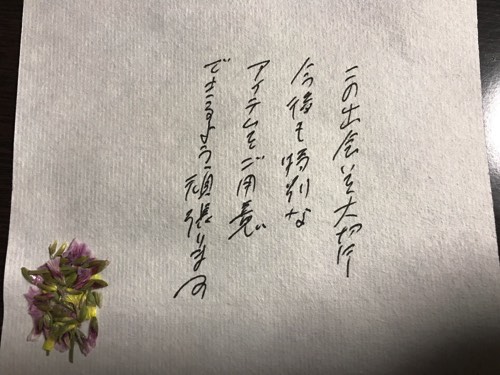 この出会いを大切に
今後も特別な
アイテムをご用意
できるよう頑張ります